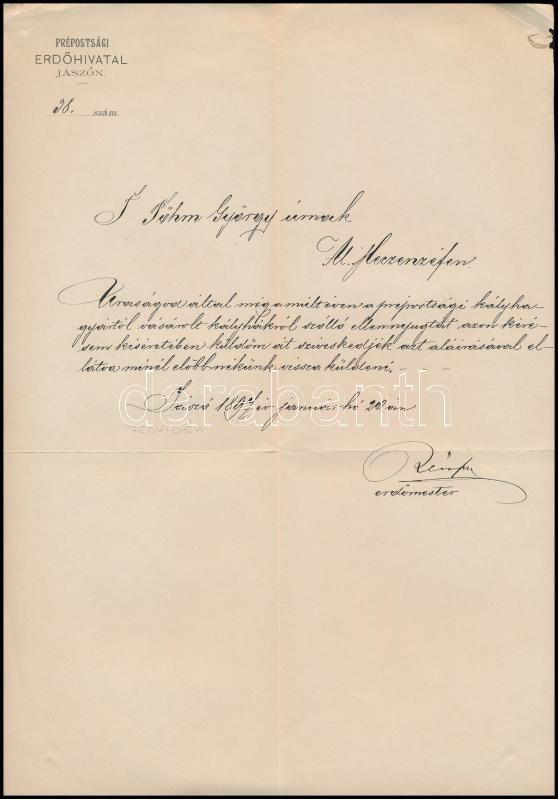 PRÉPOSTSÁGI
ERDŐHIVATAL
JÁSZÓN.
38. szám.
T Pőhm György úrnak
Al. Meczenzéfen.
Uraságod által még a mult évben a prépostsági kályha
gyártól vásárolt kályhákról szólló ellennyugtát azon kéré-
sem kiséretében küldöm át sziveskedjék azt aláirásával el-
látva minél előbb nékünk vissza küldeni, -
darabanth
Jászó 189 év január hó 20 án
FELVIDÉK
erdőmester